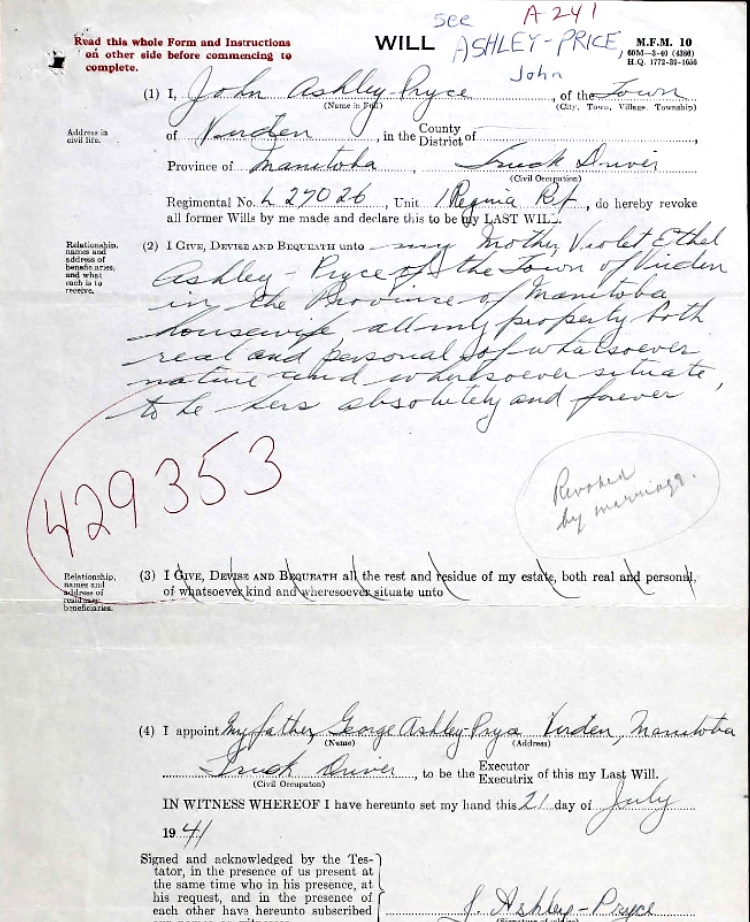 see A-241
Read this whole Form and Instructions
on other side before commencing to
complete.
WILL
ASHLEY-PRICE,
John
M.F.M. 10
60M—3-40 (4386)
H.Q. 1772-39-1656
(1) I, John Ashley Pryce, of the Town
(Name in Full) (City, Town, Village, Township)
Address in
civil life.
of Virden, in the County District of
Province of Manitoba, Truck Driver
(Civil Occupation)
Regimental No. L 27026, Unit 1 Regina Rif, do hereby revoke
all former Wills by me made and declare this to be my LAST WILL.
Relationship,
names and
address of
beneficiaries,
and what
each is to
receive.
(2) I GIVE, DEVISE AND BEQUEATH unto my Mother, Violet Ethel
Ashley-Pryce of the Town of Virden
in the Province of Manitoba
housewife, all my property both
real and personal of whatsoever
nature and wheresoever situate,
to be hers absolutely and forever
429353
Revoked
by marriage.
Relationship,
names and
address of
residuary
beneficiaries.
(3) I GIVE, DEVISE AND BEQUEATH all the rest and residue of my estate, both real and personal,
of whatsoever kind and wheresoever situate unto
(4) I appoint My father, George Ashley-Pryce Virden, Manitoba
(Name) (Address)
Truck Driver, to be the Executor Executrix of this my Last Will.
(Civil Occupation)
IN WITNESS WHEREOF I have hereunto set my hand this 21 day of July
1941
Signed and acknowledged by the Tes-
tator, in the presence of us present at
the same time who in his presence, at
his request, and in the presence of
each other have hereunto subscribed
J. Ashley-Pryce